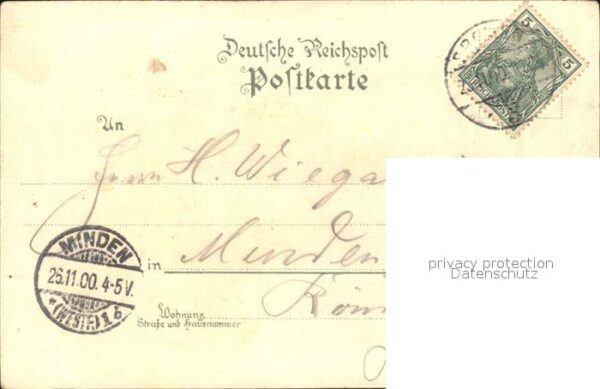 Deutsche Reichspost
Postkarte
5
5
An
Herrn H. Wiega
in Minden
MINDEN
26.11.00. 4-5 V.
(WESTF.) 1 b
Wohnung
Straße und Hausnummer
privacy protection
Datenschutz